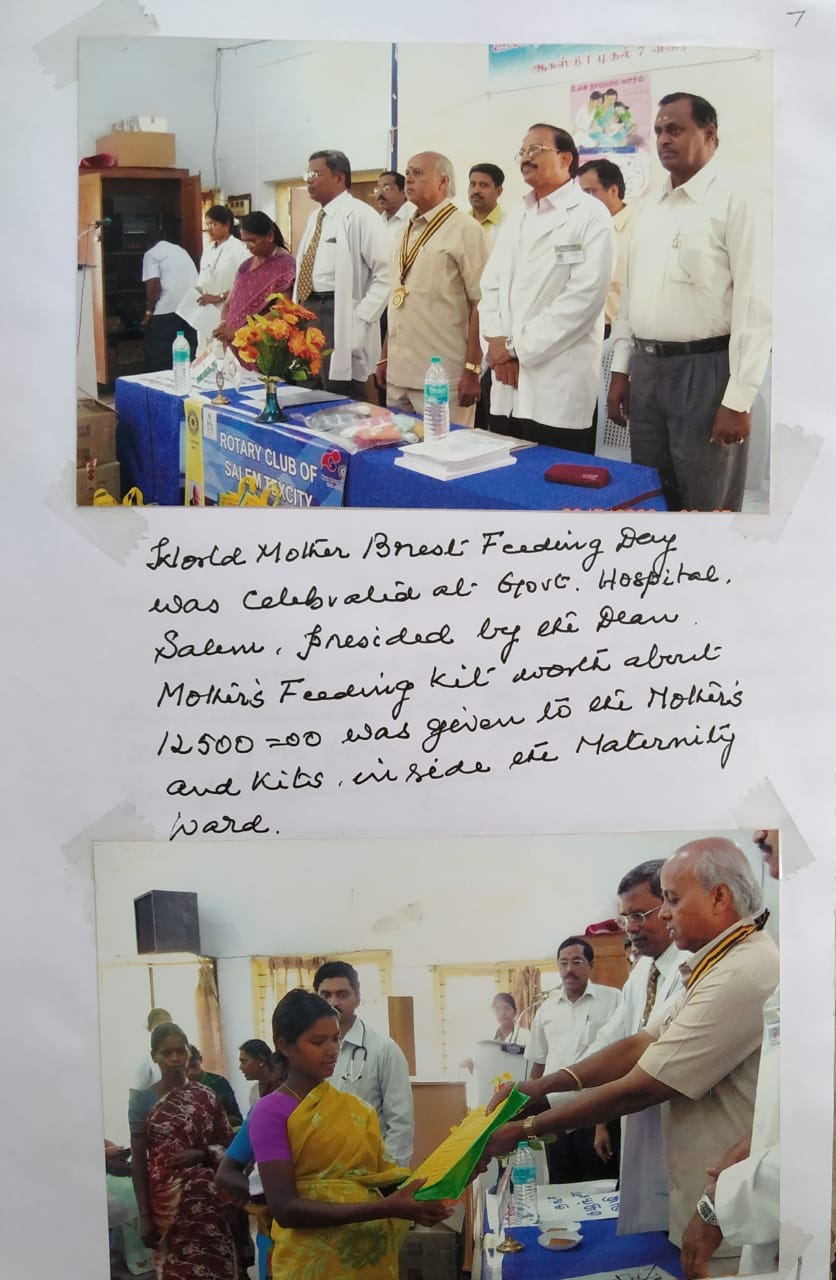 7
ஆகஸ் 61 முதல் 7 வரை
உலக தாய்ப்பால் வாரம்
ROTARY CLUB OF
SALEM TEXCITY
World Mother Brest Feeding Day
was celebrated at Govt. Hospital,
Salem, presided by the Dean.
Mother's Feeding Kit worth about
12500=00 was given to the Mother's
and Kits, inside the Maternity
Ward.